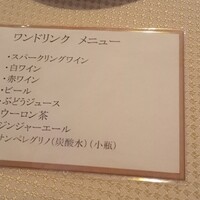 ワンドリンク メニュー
・スパークリングワイン
・白ワイン
・赤ワイン
・ビール
・ぶどうジュース
ウーロン茶
ジンジャーエール
サンペレグリノ(炭酸水)(小瓶)